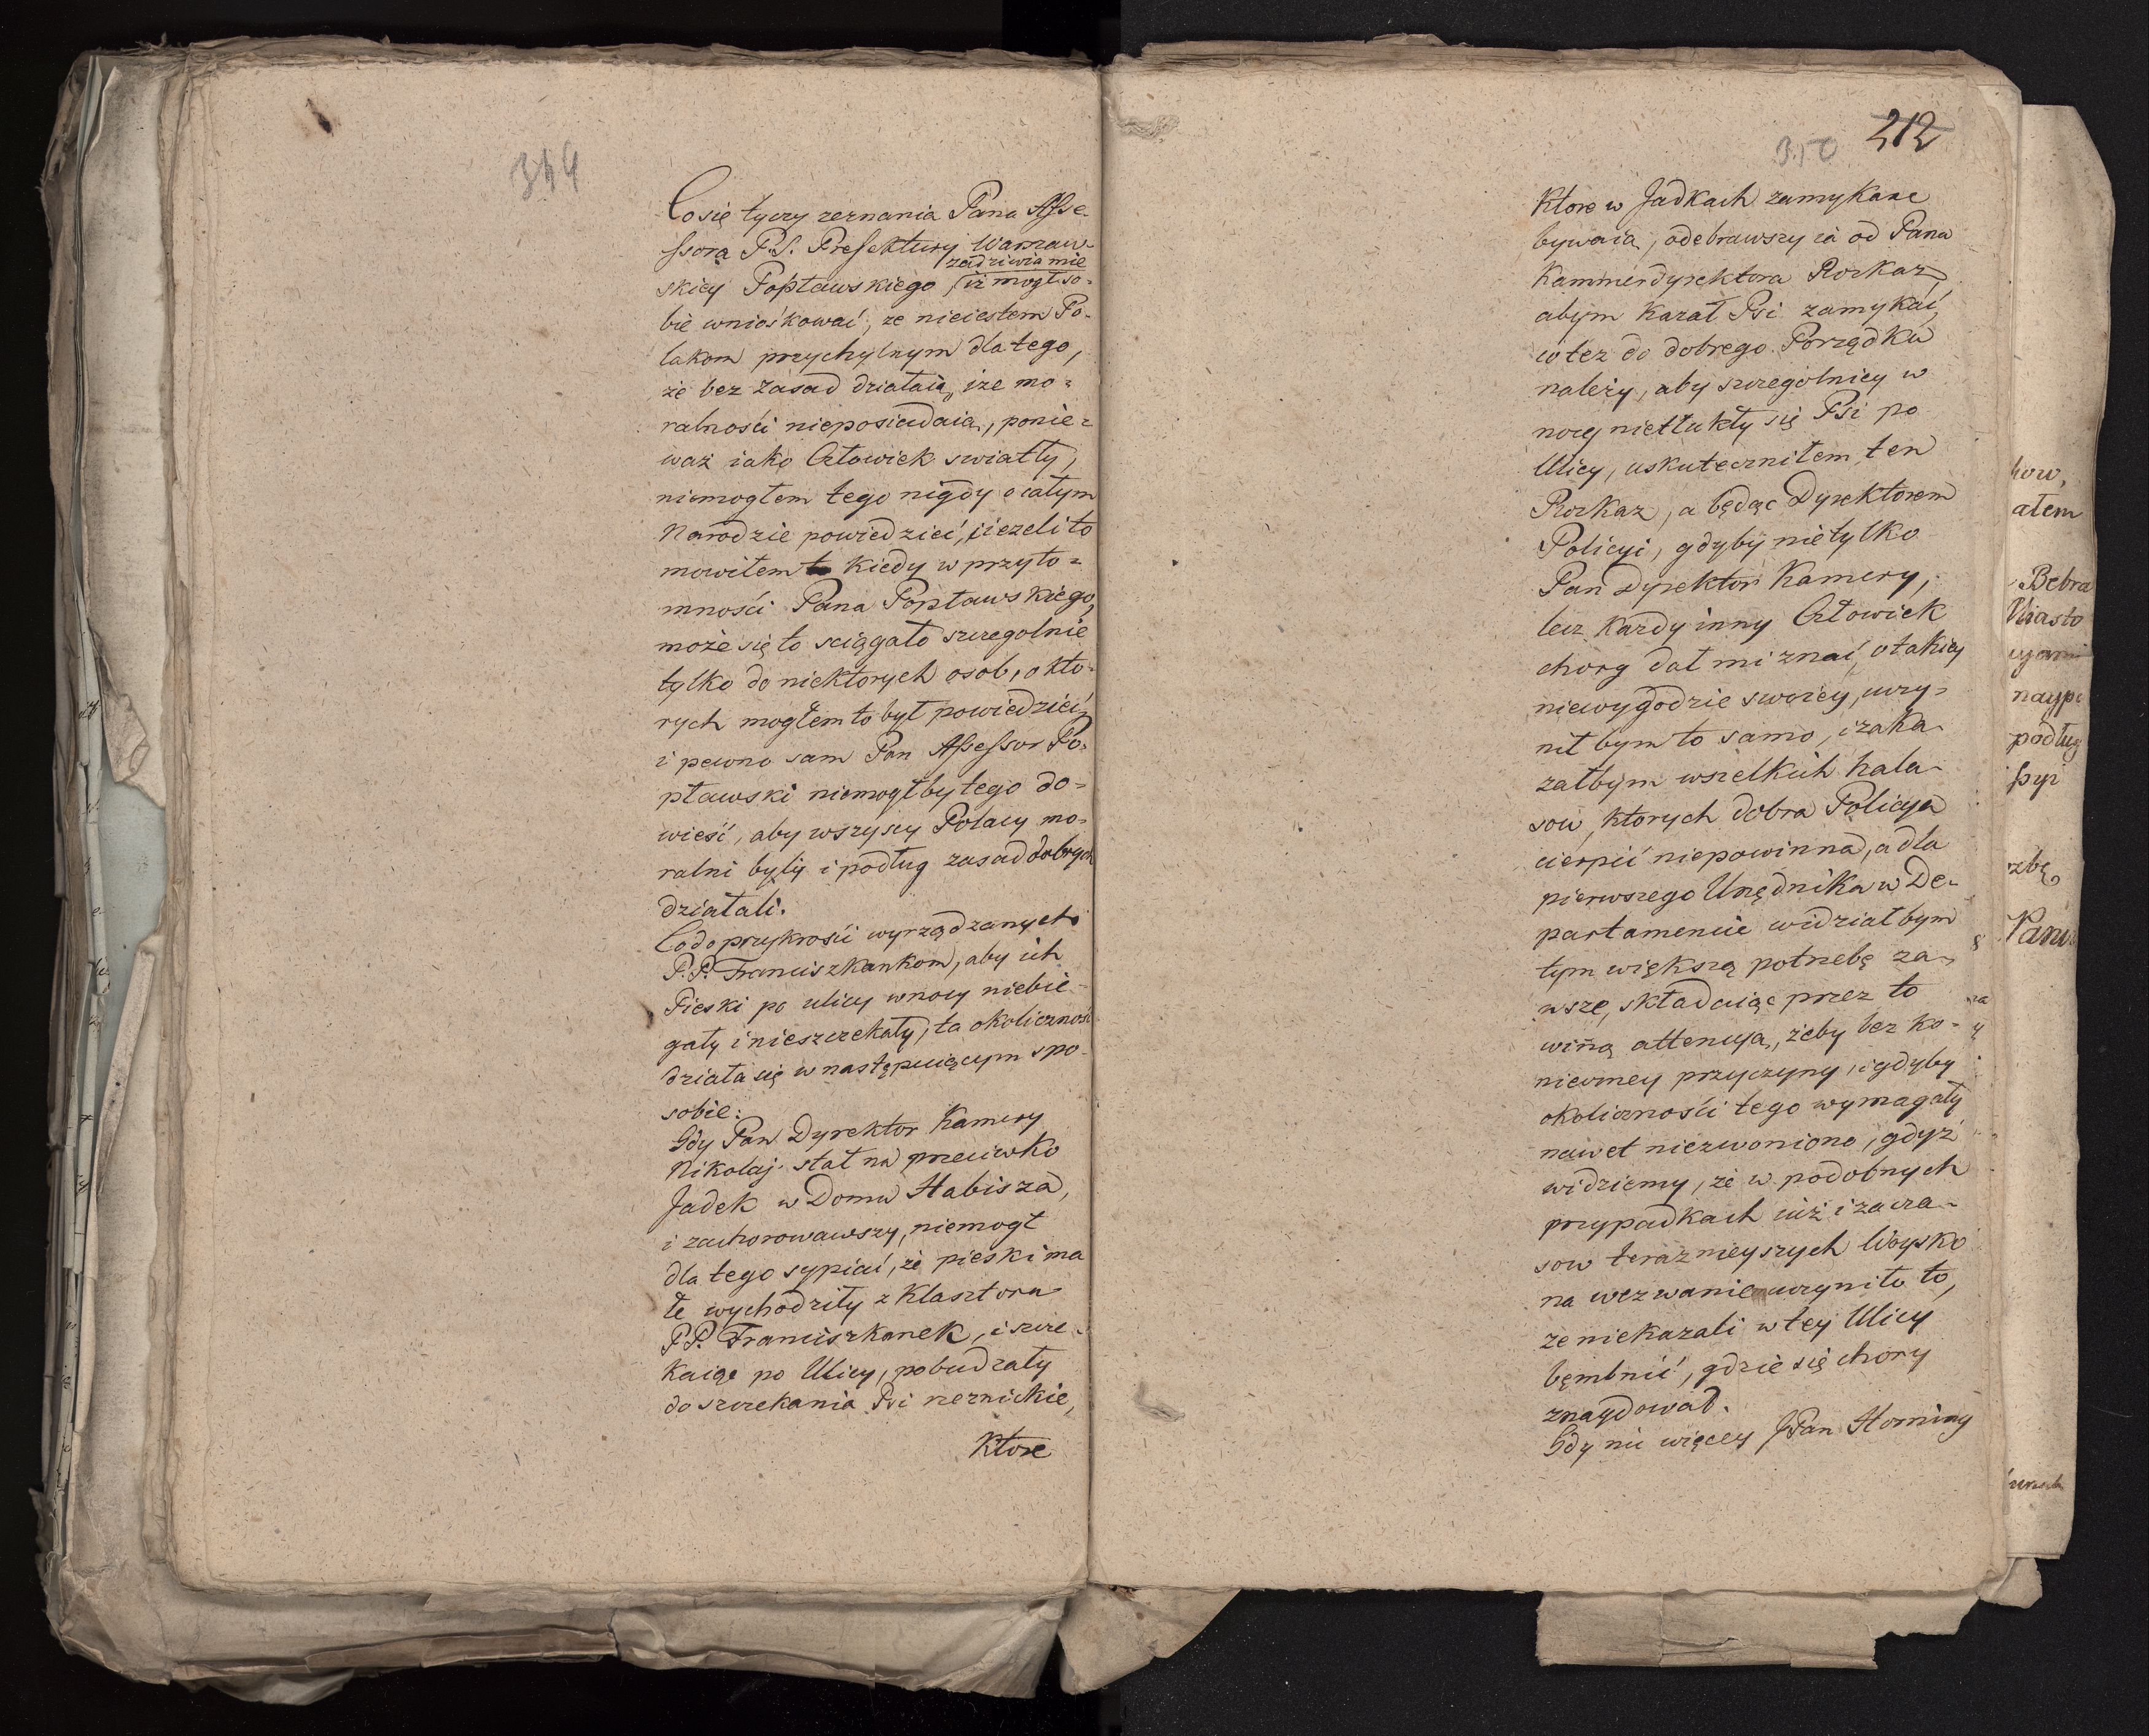 349
Co się tyczy zeznania Pana Asse-
ssora P.S. Prefektury Warszaw-
zadziwia mie
skiey Popławskiego, iż mogł so-
bie wniośkować, ze nieiestem Po-
lakom przychylnym dla tego,
że bez zasad działaią, ize mo-
ralności nieposiadaią, ponie-
waż iako Człowiek swiatły,
niemogłem tego nigdy o całym
Narodzie powiedzieć, iiezeli to
mowiłem kiedy w przyto-
mności Pana Popławskiego,
może się to sciągało szczegolnie
tylko do niektorych osob, o kto-
rych mogłem to był powiedzieć,
i pewno sam Pan Assessor Po-
pławski niemogłby tego do-
wieść, aby wszyscy Polacy mo-
ralni byli i podług zasad dobrych
działali.
Co do przykrości wyrządzanych
P.P. Franciszkankom, aby ich
Pieski po ulicy wnocy niebie-
gały i nieszczekały, ta okoliczność
działa się w następuiącym spo-
sobie:
Gdy Pan Dyrektor Kamery
Nikolaj stał na przeciwko
Jadek w Domu Habisza,
i zachorowawszy, niemogł
dla tego sypiać, że pieski ma
łe wychodziły z Klasztora
P.P. Franciszkanek, i szcze-
kaiąc po Ulicy, pobudzały
do szczekania Psi rzeznickie,
Ktore
350 212
Ktore w Jadkach zamykane
bywaią, odebrawszy ia od Pana
Kammerdyrektora Rozkaz,
abym kazał Psi zamykać,
iż tez do dobrego Porządku
należy, aby szczegolniey w
nocy nietłukły się Psi po
Ulicy, uskuteczniłem ten
Rozkaz, a będąc Dyrektorem
Policyi, gdyby nietylko
Pan Dyrektor Kamery,
lecz każdy inny Człowiek
chory dał mi znać, o takiey
niewygodzie swoiey, uczy-
nił bym to samo, i zaka-
załbym wszelkich hała-
sow, ktorych dobra Policya
cierpić niepowinna, a dla
pierwszego Urzędnika w De-
partamencie widziałbym
tym większą potrzebę za-
wsze, składaiąc przez to
winą attencyą, żeby bez ko-
nieczney przyczyny, i gdyby
okoliczności tego wymagały
nawet niezwoniono, gdyż
widziemy, że w podobnych
przypadkach iuż i za cza-
sow teraznieyszych Woysko
na wezwanie uczyniło to,
ze niekazali w tey Ulicy
bębnić, gdzie się chory
znaydował.
Gdy nic więcey JPan Horning
atem
Bebra
Miasto
podług